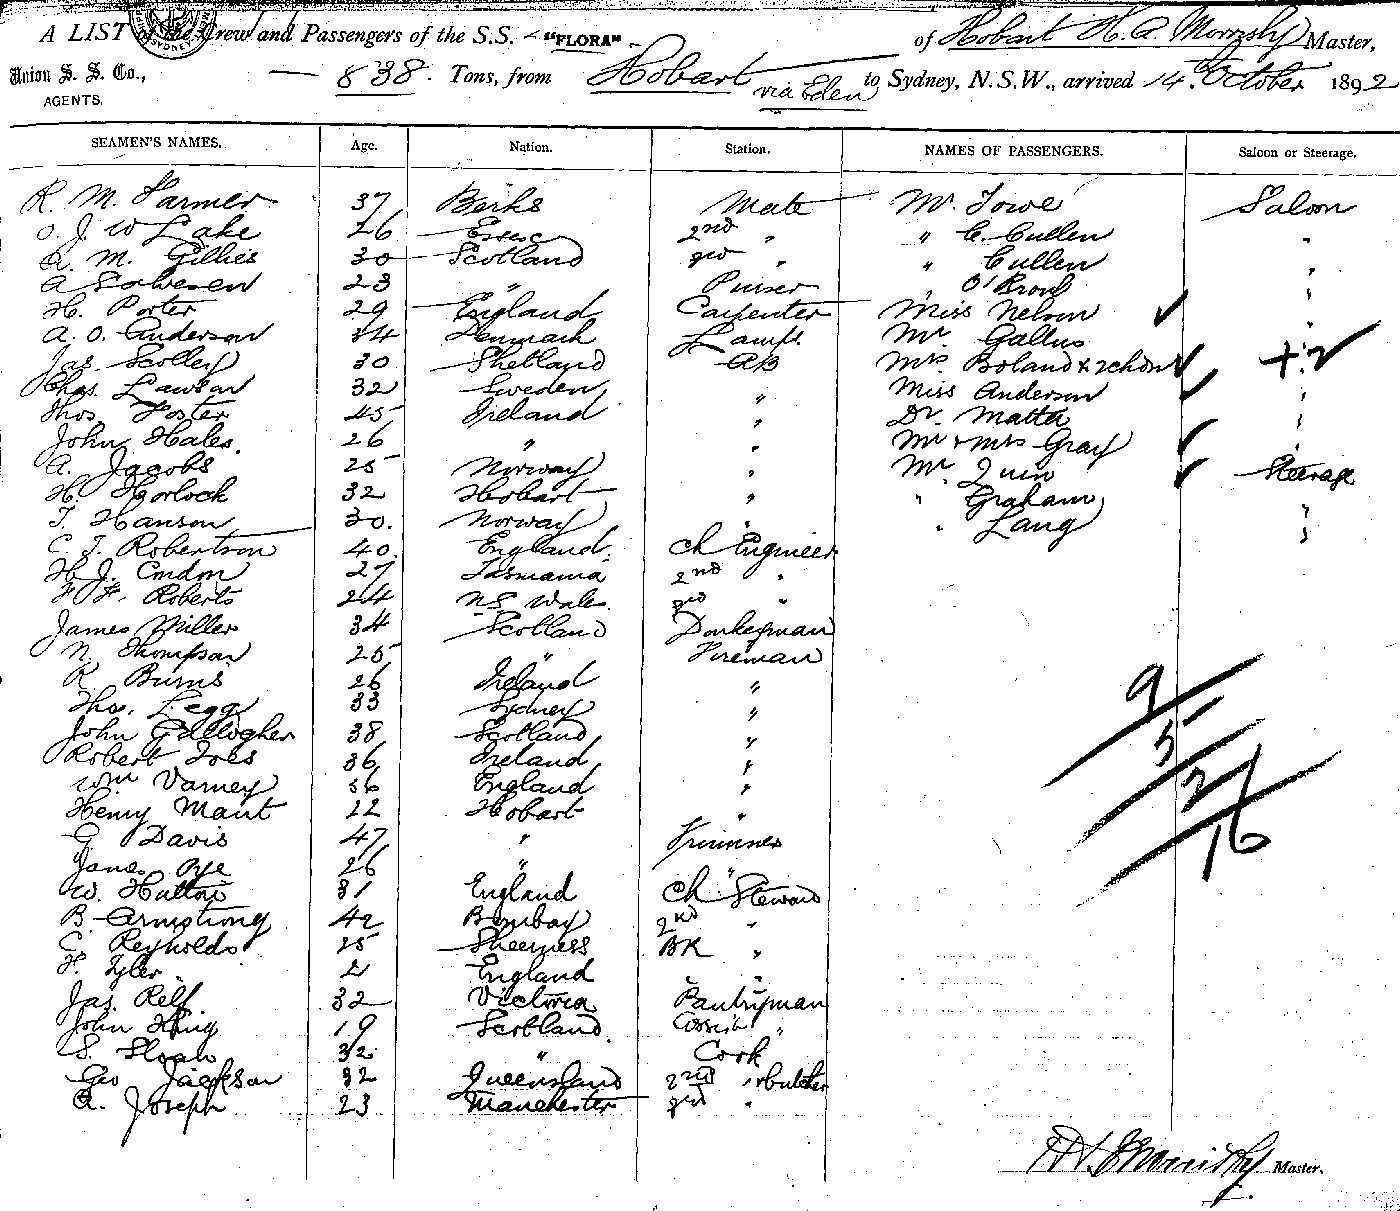 A LIST of the Crew and Passengers of the S.S. "FLORA" of Hobart H. A. Master,
Union S. S. Co., 838 Tons, from Hobart via Eden to Sydney, N.S.W., arrived 14th October 1892
AGENTS.
SEAMEN'S NAMES. Age. Nation. Station. NAMES OF PASSENGERS. Saloon or Steerage.
R. M. Farmer 37 Berks Mate Mr. Towe Saloon
O. J. W Lake 26 Essex 2nd " " C. Cullen "
A. M. Gillies 30 Scotland 3rd " " Cullen "
A 23 " Purser "
H. Porter 29 England Carpenter Miss Nelson "
A. O. Anderson 34 Denmark Lamps Mr. Gallus "
Jas. Scolley 30 Shetland AB Mrs. Boland & 2 chdn + 2
Chas. Lawson 32 Sweden " Miss Anderson "
Thos Foster 45 Ireland " Dr. Matta "
John Hales. 26 " " Mr & Mrs Gray "
A. Jacobs 25 Norway " Mr. Quin Steerage
H. Horlock 32 Hobart " " Graham "
T. Hanson 30. Norway " " Lang "
C. J. Robertson 40. England. Ch Engineer
H. J. 27 Tasmania 2nd "
F. Roberts 24 N S Wales. 3rd "
James Miller 34 Scotland Donkeyman
N. Thompson 25 " Fireman
R. Burns 26 Ireland "
Thos. Legg 33 Sydney "
John Gallogher 38 Scotland "
Robert 36 Ireland "
Wm Varney 36 England "
Henry Mant 22 Hobart "
G. Davis 47 " Trimmer
James Pye 26 " "
W. Hutton 31 England Ch Steward
B. Armstrong 42 Bombay 2nd "
C. Reynolds 25 Sheerness BK "
F. Tyler England "
Jas. Relf 32 Victoria Pantryman
John King 19 Scotland. "
S. Sloan 32 " Cook
Geo Jackson 32 Queensland 2nd " & butcher
A. Joseph 23 Manchester 3rd "
9
5
2
16
Master.